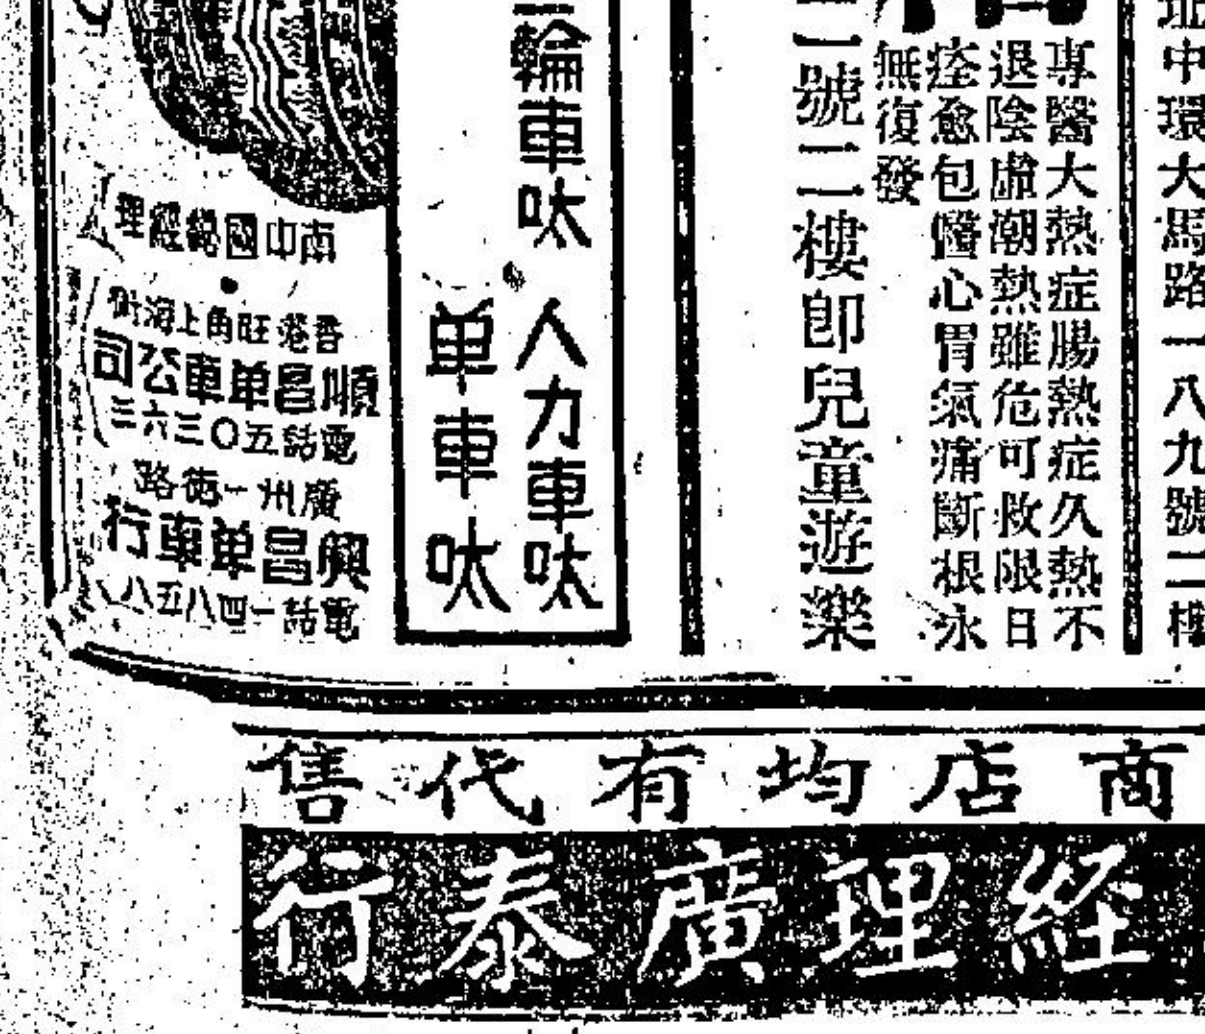 址中環大馬路一八九號二樓
專醫大熱症腸熱症久熱不
退陰虛潮熱雖危可救限日
痊愈包醫心胃氣痛斷根永
無復發
二號二樓即兒童遊樂
輪車呔
人力車呔
单車呔
南中國總經理
香港旺角上海街
順昌单車公司
電話五〇三六三
廣州一德路
興昌单車行
電話一四八五八
商店均有代售
經理廣泰行